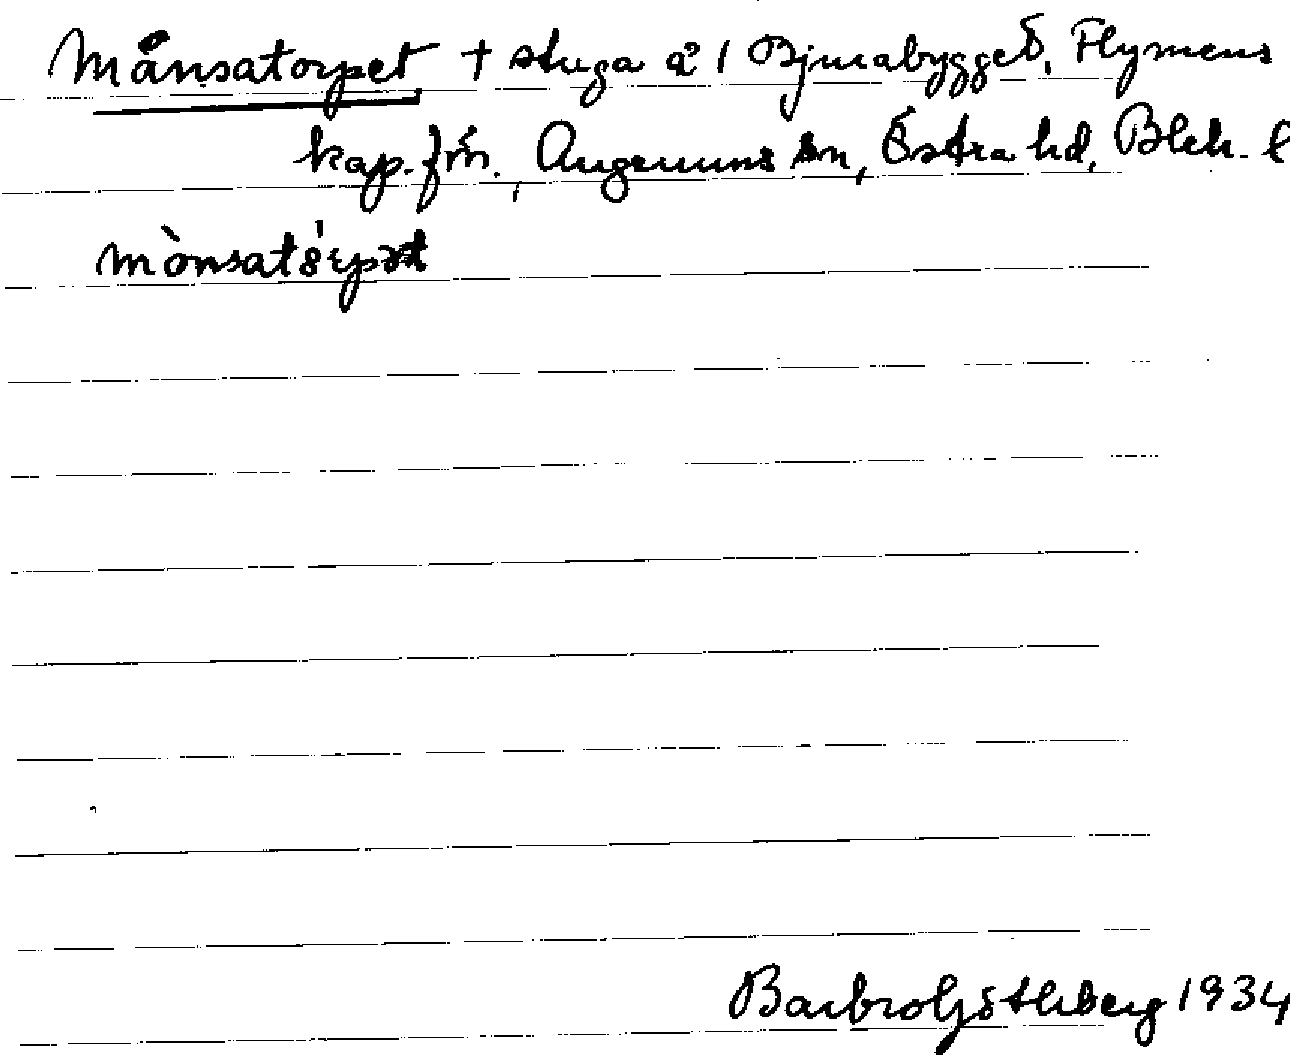 Månsatorpet † stuga å 1 Bjurabygget, Flymens
kap. förs., Augerums sn, Östra hd, Blek. l
mònsatórpət
Barbro Göthberg 1934